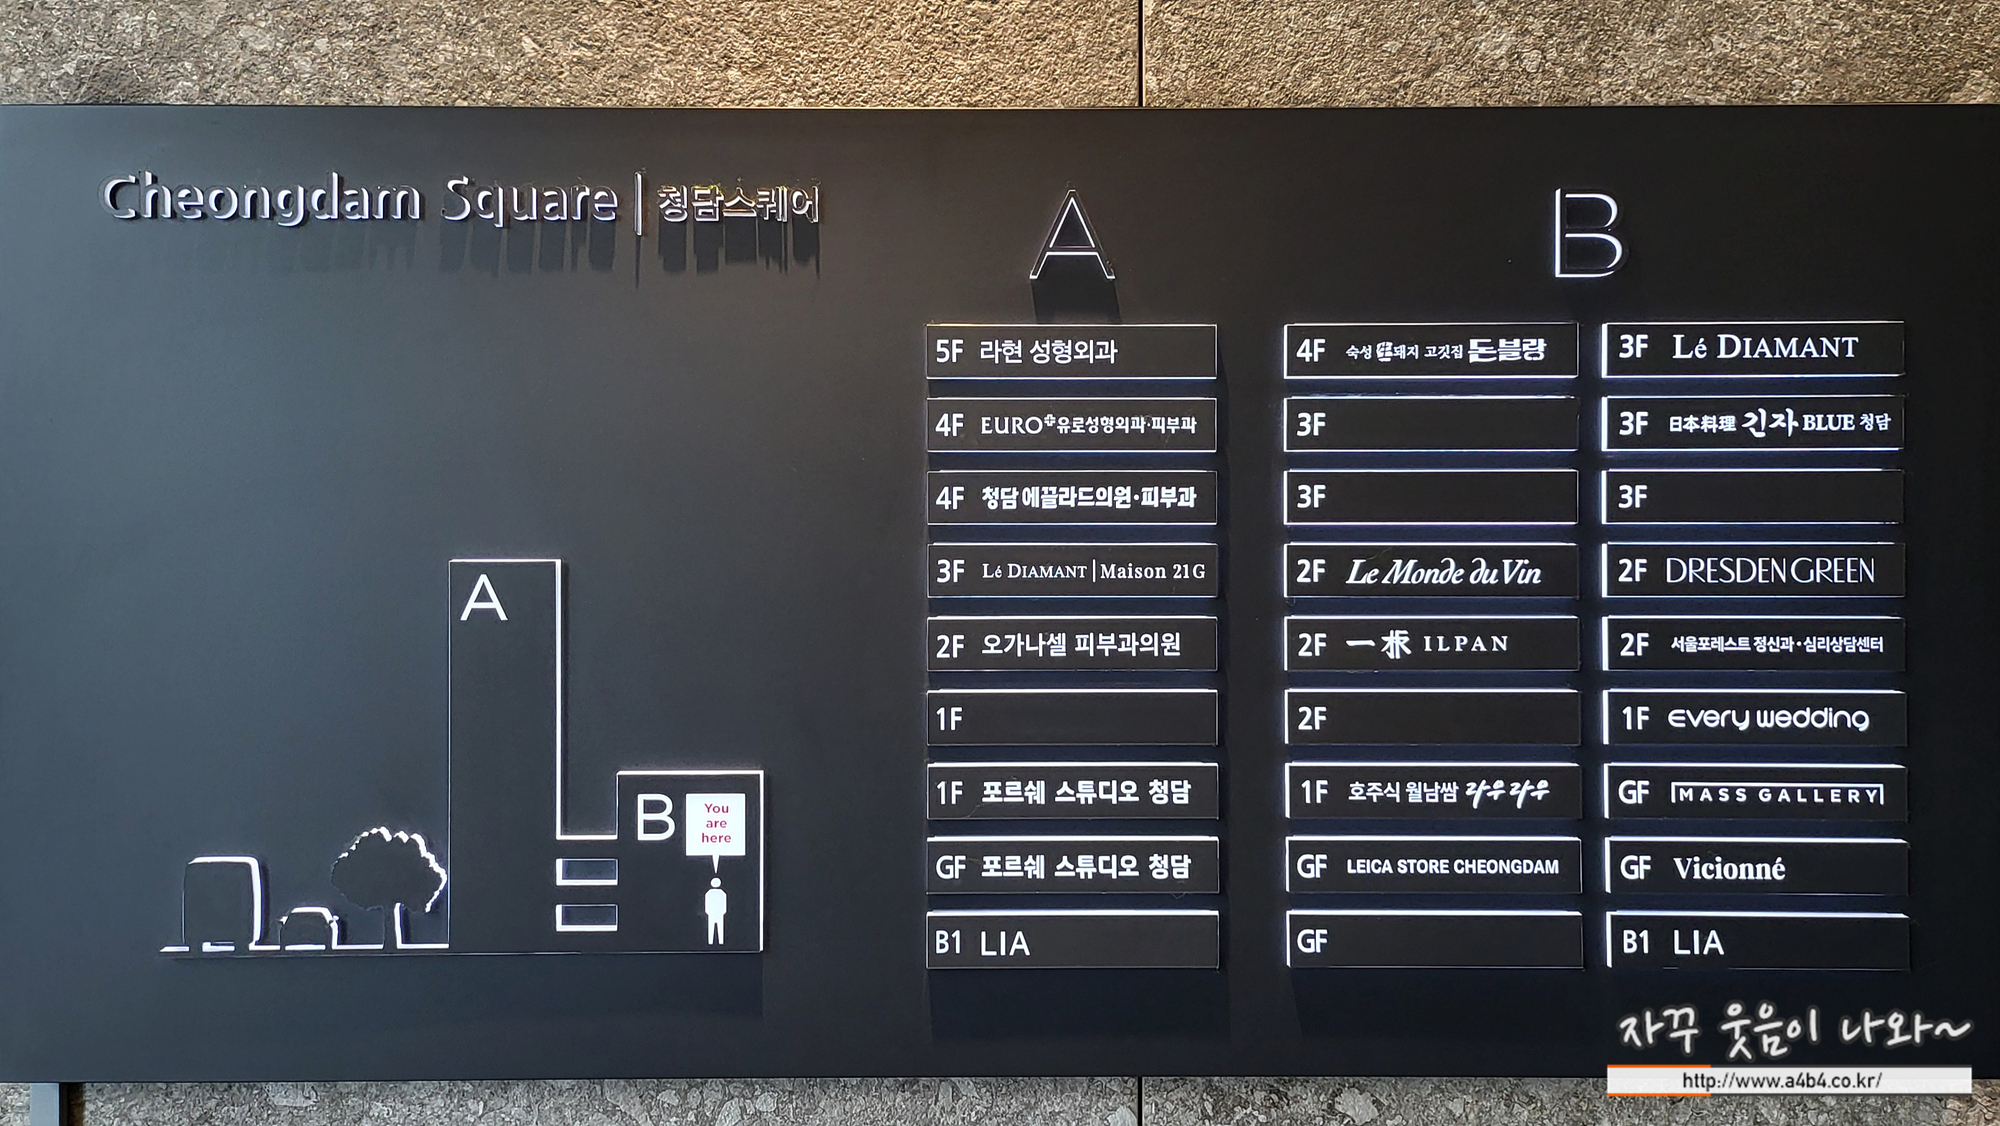 Cheongdam Square | 청담스퀘어
A
5F 라현 성형외과
4F EURO 유로성형외과·피부과
4F 청담 에끌라드의원·피부과
3F Lé DIAMANT | Maison 21G
2F 오가나셀 피부과의원
1F
1F 포르쉐 스튜디오 청담
GF 포르쉐 스튜디오 청담
B1 LIA
B
4F 숙성 돼지 고깃집 돈블랑
3F
3F
2F Le Monde du Vin
2F 一板 ILPAN
2F
1F 호주식 월남쌈 라우라우
GF LEICA STORE CHEONGDAM
GF
3F Lé DIAMANT
3F 日本料理 긴자 BLUE 청담
3F
2F DRESDEN GREEN
2F 서울포레스트 정신과·심리상담센터
1F every wedding
GF MASS GALLERY
GF Vicionné
B1 LIA
A
B
You
are
here
자꾸 웃음이 나와~
http://www.a4b4.co.kr/